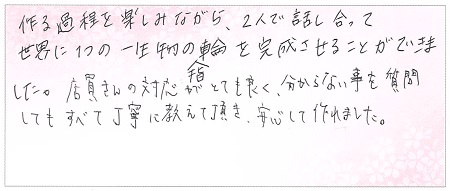 作る過程を楽しみながら、2人で話し合って
世界に1つの一生物の指輪を完成させることができま
した。店員さんの対応がとても良く、分からない事を質問
してもすべて丁寧に教えて頂き、安心して作れました。